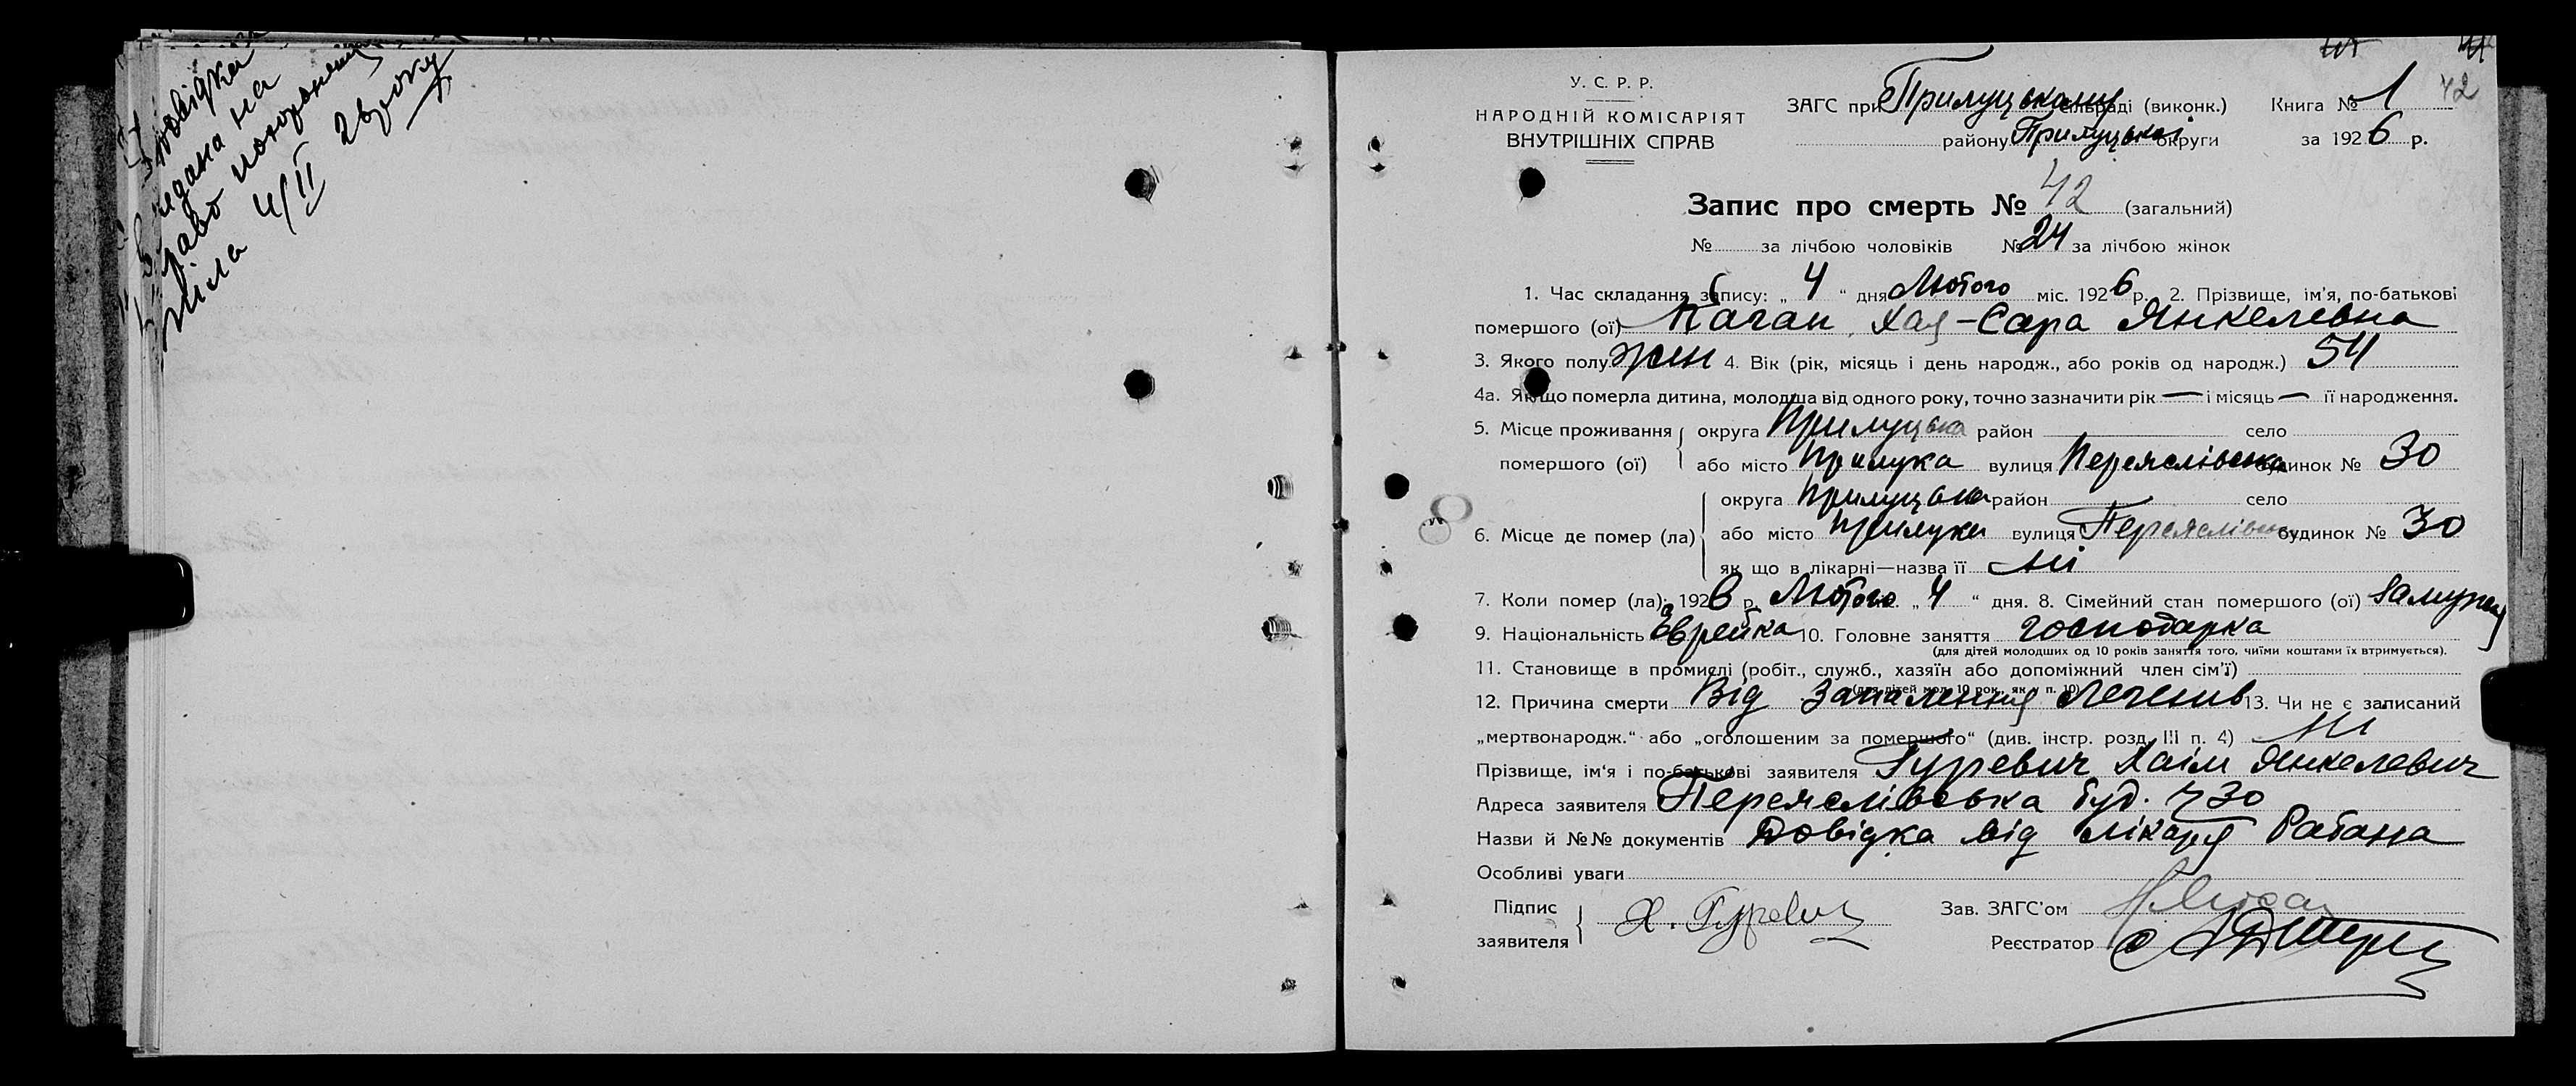 Довідка
видана на
право похорон
тіла 4/II 26 року
42
У. С. Р. Р.
НАРОДНІЙ КОМІСАРІЯТ
ВНУТРІШНІХ СПРАВ
ЗАГС при Прилуцькому сельраді (виконк.) Книга № 1
району Прилуцької округи за 1926 р.
Запис про смерть № 42 (загальний)
№ за лічбою чоловіків № 24 за лічбою жінок
1. Час складання запису: „ 4 “ дня Лютого міс. 1926 р. 2. Прізвище, ім'я, по-батькові
помершого (ої) Каган Хая-Сара Янкелевна
3. Якого полу жін 4. Вік (рік, місяць і день народж., або років од народж.) 54
4а. Якщо померла дитина, молодша від одного року, точно зазначити рік — і місяць — її народження.
5. Місце проживання округа Прилуцька район село
помершого (ої) або місто Прилука вулиця Переяслівська будинок № 30
округа Прилуцька район село
6. Місце де помер (ла) або місто Прилуки вулиця Переяслівська будинок № 30
як що в лікарні—назва її ні
7. Коли помер (ла): 1926 р. Лютого „ 4 “ дня. 8. Сімейний стан помершого (ої) Замужня
9. Національність Єврейка 10. Головне заняття господарка
(для дітей молодших од 10 років заняття того, чиїми коштами їх втримується).
11. Становище в промислі (робіт., служб., хазяїн або допоміжний член сім'ї)
(для дітей мол. 10 рок., як у п. 10)
12. Причина смерти Від запалення Легенив 13. Чи не є записаний
„мертвонародж.“ або „оголошеним за помершого“ (див. інстр. розд. III п. 4) Ні
Прізвище, ім'я і по-батькові заявителя Гуревич Хаїм Янкелевич
Адреса заявителя Переяслівська буд. № 30
Назви й №№ документів Довідка від лікаря Рабана
Особливі уваги
Підпис
заявителя Х. Гуревич
Зав. ЗАГС'ом
Реєстратор